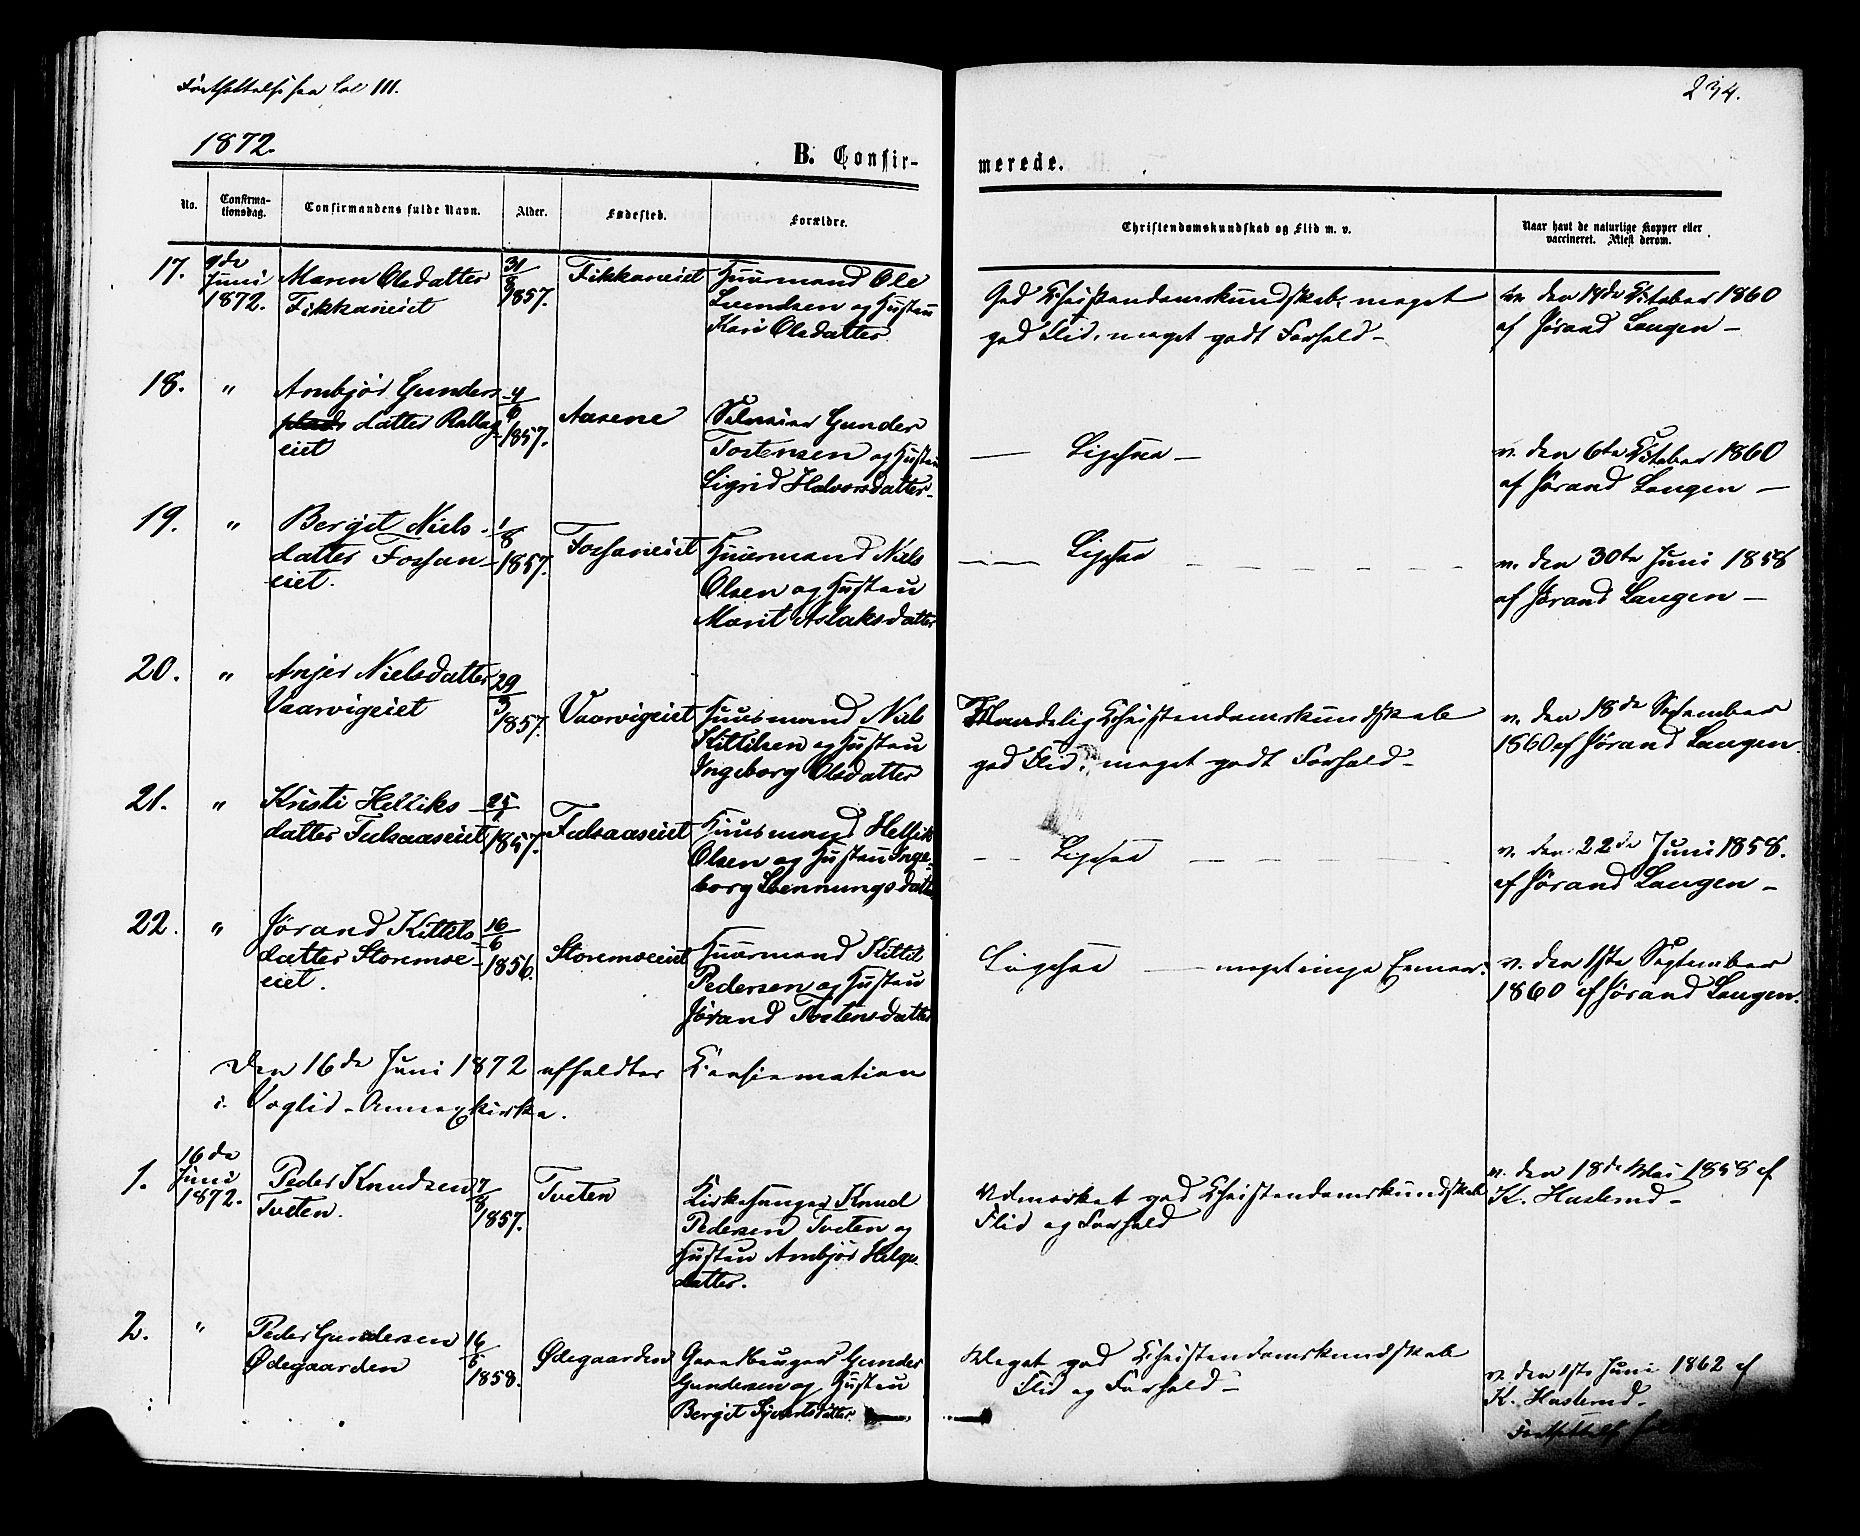 Fortsættelse fra Fol 111.
234.
1872.
B. Confir-
merede.
No.
Confirma-
tionsdag.
Confirmandens fulde Navn.
Alder.
Fødested.
Forældre.
Christendomskundskab og Flid m. v.
Naar havt de naturlige Kopper eller
vaccineret. Attest derom.
17.
9de
Juni
1872.
Maren Olsdatter
Fikkaneiet
31/8
1857.
Fikkaneiet
Huusmand Ole
Svendsen og Hustru
Kari Olsdatter
God Christendomskundskab, meget
god Flid, meget godt Forhold -
v. den 14de Oktober 1860
af Jørand Langen -
18.
"
Ambjør Gunders
datter Rallag
eiet
4/6
1857.
Aasene
Selveier Gunder
Tostensen og Hustru
Sigrid Halvorsdatter -
— Ligesaa -
v. den 6te Oktober 1860
af Jørand Langen -
19.
"
Bergit Niels
datter Fosfan-
eiet.
1/8
1857.
Fosfaneiet
Huusmand Niels
Olsen og Hustru
Marit Aslaksdatter
— Ligesaa - - - - - -
v. den 30te Juni 1858
af Jørand Langen -
20.
"
Anjer Nielsdatter
Vaarvigeiet
29/3
1857.
Vaarvigeiet
Huusmand Niels
Kittilsen og Hustru
Ingeborg Olsdatter
Maadelig Christendomskundskab
god Flid, meget godt Forhold -
v. den 18de September
1860 af Jørand Langen.
21.
"
Kristi Helliks
datter Fulsaaseiet
1857.
Fulsaaseiet
Huusmand Hellik
Olsen og Hustru Inge-
borg Hennungsdatter
- - Ligesaa - - - -
v. den 22de Juni 1858.
af Jørand Langen -
22.
"
Jørand Kittils
datter Storemoe-
eiet.
16/6
1856.
Storemoeeiet
Huusmand Kittil
Pedersen og Hustru
Jørand Tostensdatter
Ligesaa — meget ringe Evner.
v. den 1ste September
1860 af Jørand Langen.
Den 16de Juni 1872 afholdtes Konfirmation
i Voglid - Annexkirke.
1.
16de
Juni
1872.
Peder Knudsen
Tveten.
7/8
1857.
Tveten
Kirkesanger Knud
Pedersen Tveten og
Hustru Ambjør Helge
datter.
Udmærket god Christendomskundskab
Flid og Forhold
v. den 18de Mai 1858 af
K. Haslerud -
2.
"
Peder Gundersen
Ødegaarden
16/6
1858.
Ødegaarden
Gaardbruger Gunder
Gundersen og Hustru
Bergit Sjvertsdatter
Meget god Christendomskundskab
Flid og Forhold -
v. den 1ste Juni 1862 af
K. Haslerud -
Fortsættelse